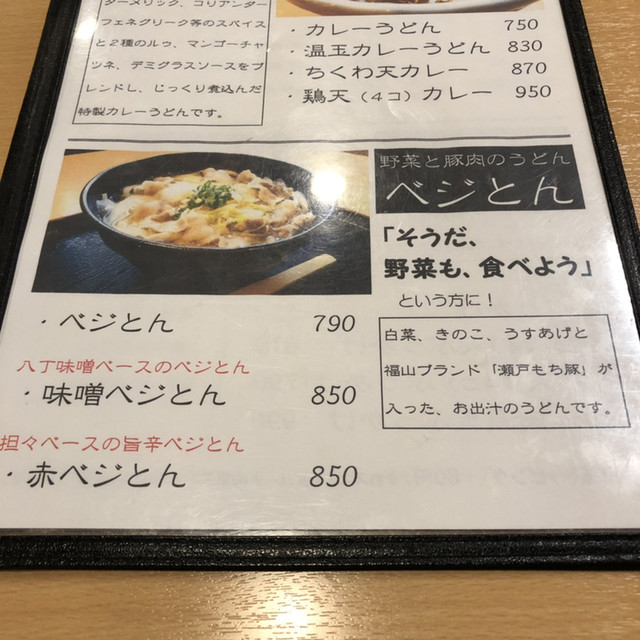 ターメリック、コリアンダー
フェネグリーク等のスパイス
と2種のルウ、マンゴーチャ
ツネ、デミグラスソースをブ
レンドし、じっくり煮込んだ
特製カレーうどんです。
・カレーうどん 750
・温玉カレーうどん 830
・ちくわ天カレー 870
・鶏天（4コ）カレー 950
野菜と豚肉のうどん
ベジとん
「そうだ、
野菜も、食べよう」
という方に！
白菜、きのこ、うすあげと
福山ブランド「瀬戸もち豚」が
入った、お出汁のうどんです。
・ベジとん 790
八丁味噌ベースのベジとん
・味噌ベジとん 850
担々ベースの旨辛ベジとん
・赤ベジとん 850